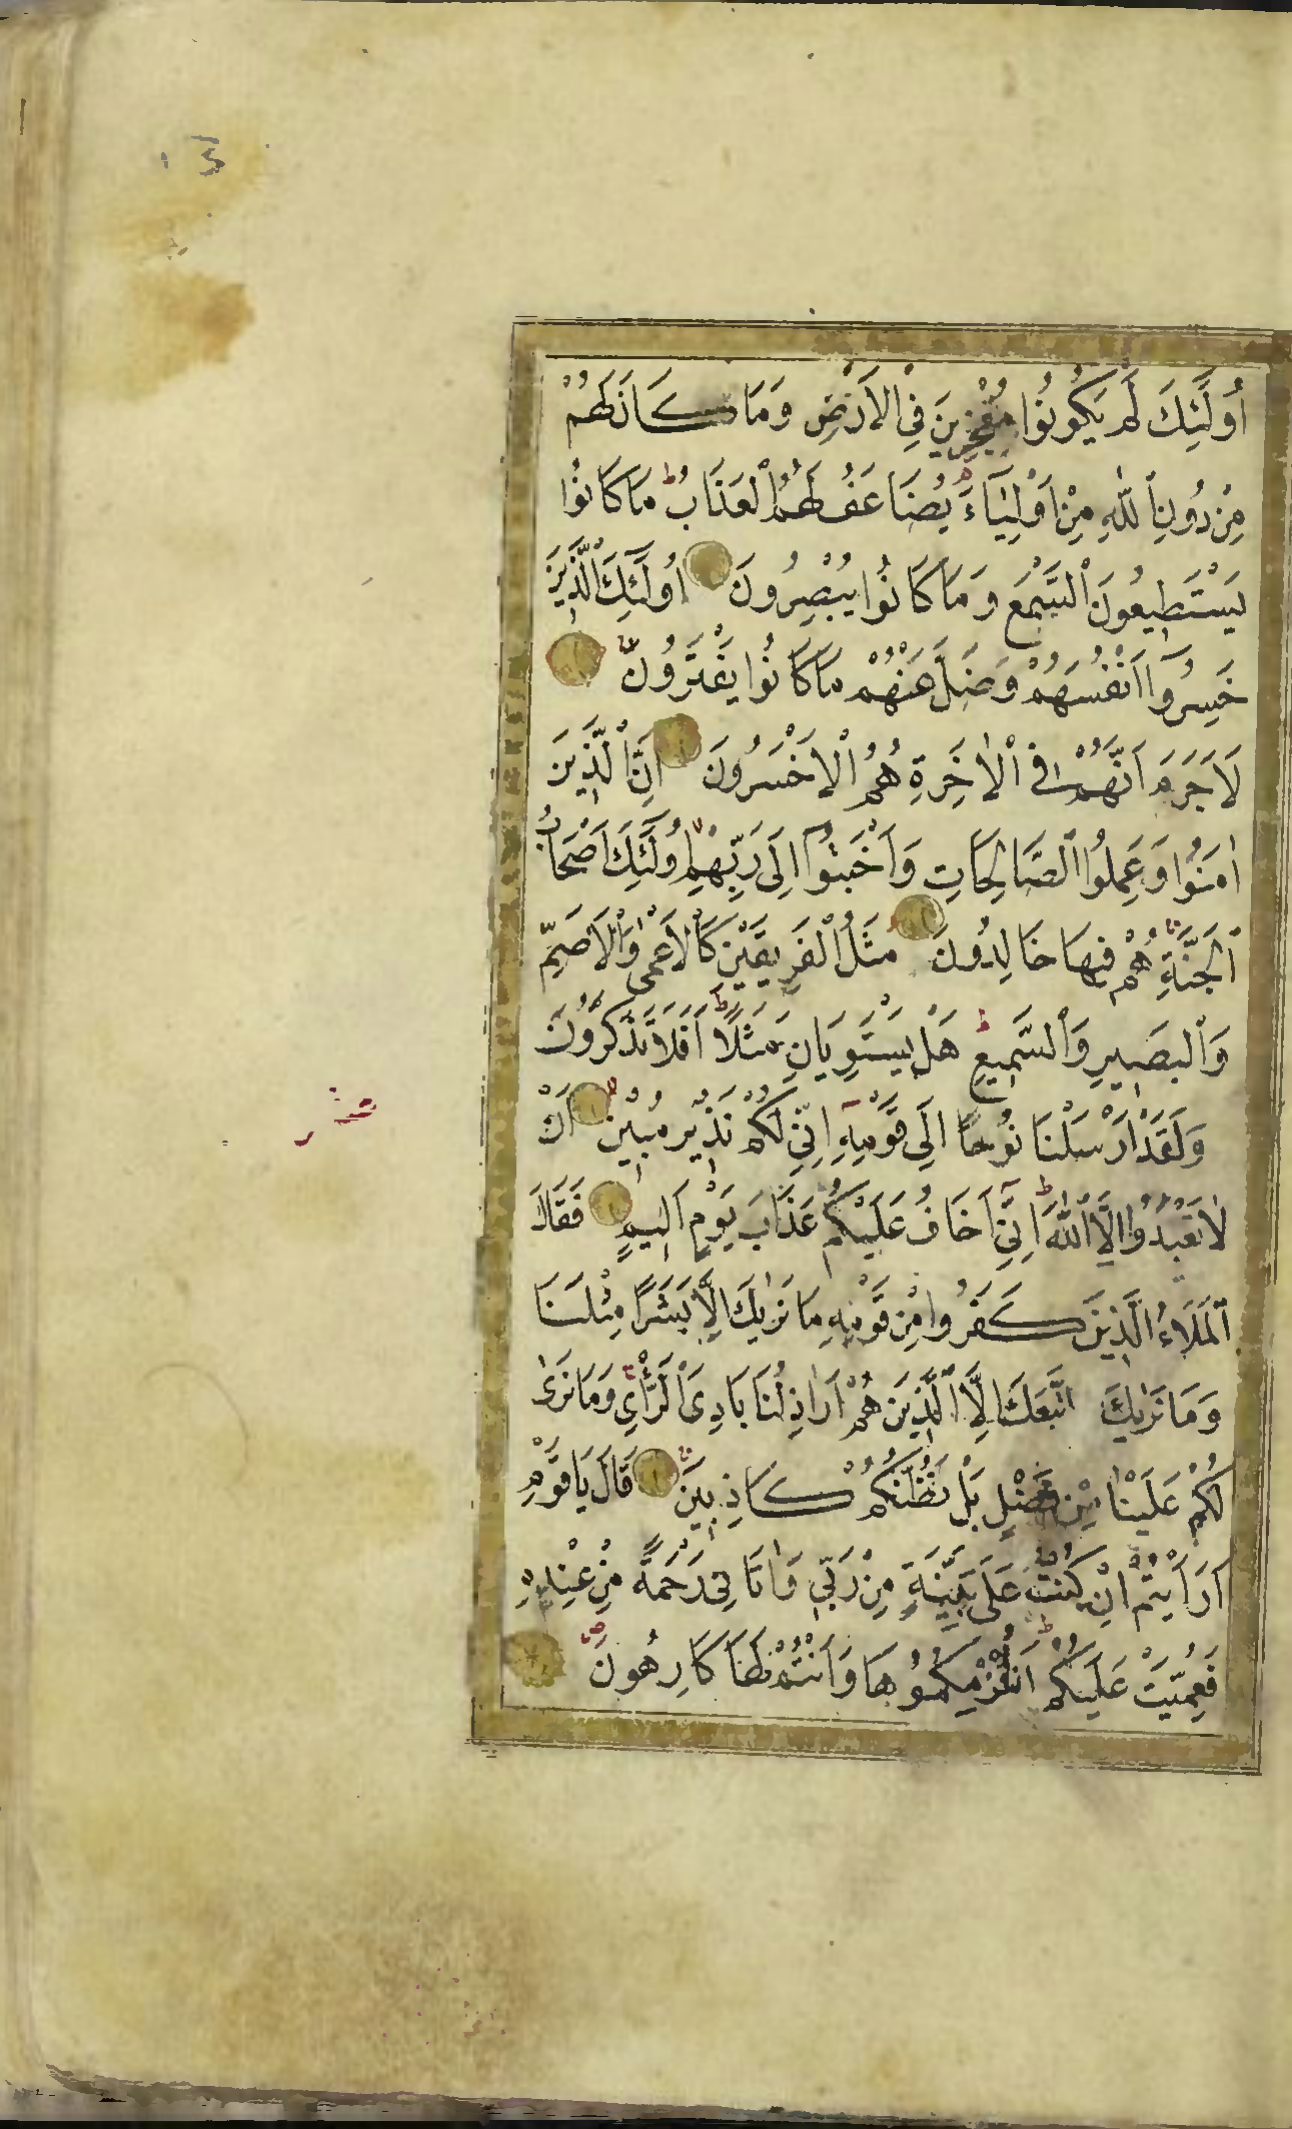 أُولَٓئِكَ لَمْ يَكُونُوا مُعْجِزِينَ فِي الْاَرْضِ وَمَا كَانَ لَهُمْ
مِنْ دُونِ اللّٰهِ مِنْ اَوْلِيَٓاءَ يُضَاعَفُ لَهُمُ الْعَذَابُ مَا كَانُوا
يَسْتَطِيعُونَ السَّمْعَ وَمَا كَانُوا يُبْصِرُونَ اُولَٓئِكَ الَّذِينَ
خَسِرُٓوا اَنْفُسَهُمْ وَضَلَّ عَنْهُمْ مَا كَانُوا يَفْتَرُونَ
لَا جَرَمَ اَنَّهُمْ فِي الْاٰخِرَةِ هُمُ الْاَخْسَرُونَ اِنَّ الَّذِينَ
اٰمَنُوا وَعَمِلُوا الصَّالِحَاتِ وَاَخْبَتُٓوا اِلَى رَبِّهِمْ اُولَٓئِكَ اَصْحَابُ
الْجَنَّةِ هُمْ فِيهَا خَالِدُونَ مَثَلُ الْفَرِيقَيْنِ كَالْاَعْمٰى وَالْاَصَمِّ
وَالْبَصِيرِ وَالسَّمِيعِ هَلْ يَسْتَوِيَانِ مَثَلًا اَفَلَا تَذَكَّرُونَ
وَلَقَدْ اَرْسَلْنَا نُوحًا اِلَى قَوْمِهٓ اِنِّي لَكُمْ نَذِيرٌ مُبِينٌ اَنْ
لَا تَعْبُدُٓوا اِلَّا اللّٰهَ اِنِّٓي اَخَافُ عَلَيْكُمْ عَذَابَ يَوْمٍ اَلِيمٍ فَقَالَ
الْمَلَاءُ الَّذِينَ كَفَرُوا مِنْ قَوْمِهِ مَا نَرٰيكَ اِلَّا بَشَرًا مِثْلَنَا
وَمَا نَرٰيكَ اتَّبَعَكَ اِلَّا الَّذِينَ هُمْ اَرَاذِلُنَا بَادِىَ الرَّأْيِ وَمَا نَرٰى
لَكُمْ عَلَيْنَا مِنْ فَضْلٍ بَلْ نَظُنُّكُمْ كَاذِبِينَ قَالَ يَا قَوْمِ
اَرَاَيْتُمْ اِنْ كُنْتُ عَلَى بَيِّنَةٍ مِنْ رَبِّي وَاٰتَانِي رَحْمَةً مِنْ عِنْدِهِ
فَعُمِّيَتْ عَلَيْكُمْ اَنُلْزِمُكُمُوهَا وَاَنْتُمْ لَهَا كَارِهُونَ